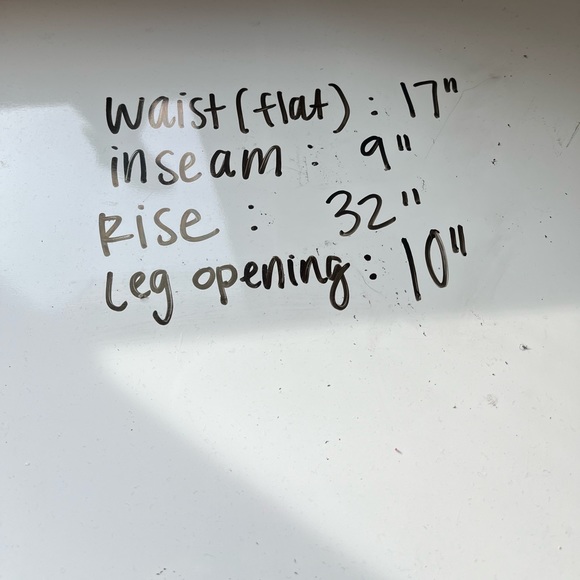 Waist (flat) : 17"
inseam : 9"
Rise : 32"
Leg opening : 10"